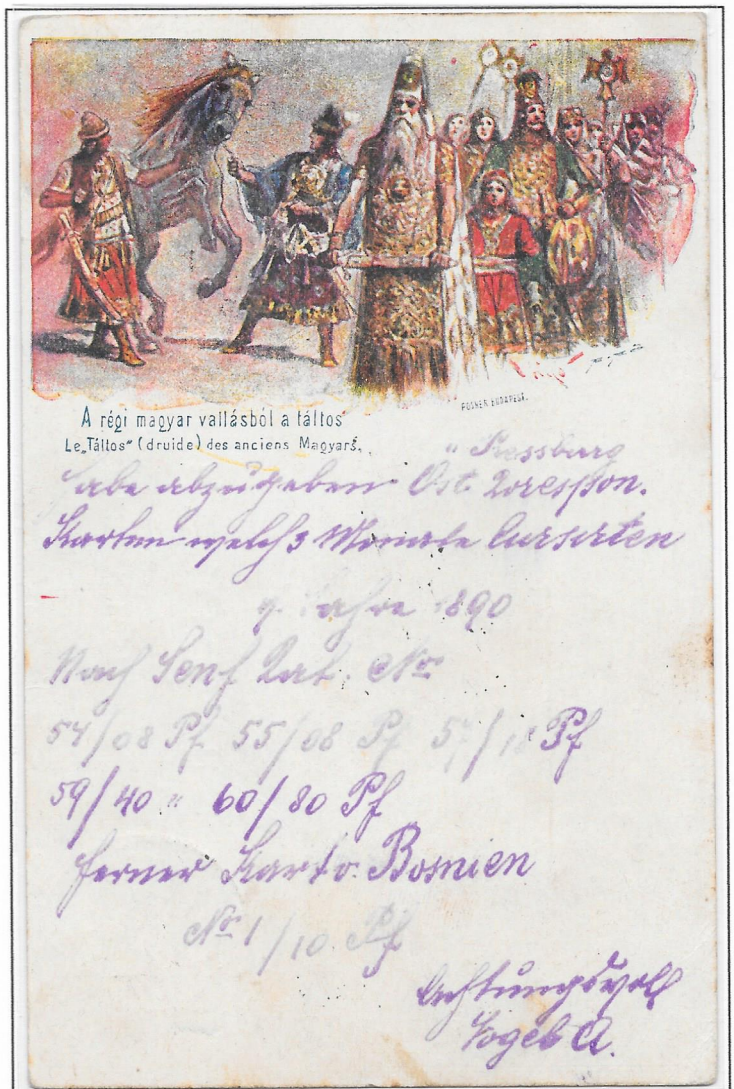 POSNER BUDAPEST.
A régi magyar vallásból a táltos
Le „Táltos“ (druide) des anciens Magyars.
Pressburg
habe abzugeben Ost. Corespon.
Karten welch 3 Monate Cursirten
Jahre 1890
Nach Senf Cat. No
54/08 Pf 55/08 Pf 57/18 Pf
59/40 " 60/80 Pf
ferner Karte v. Bosnien
No 1/10 Pf
Achtungsvoll
Vogel A.